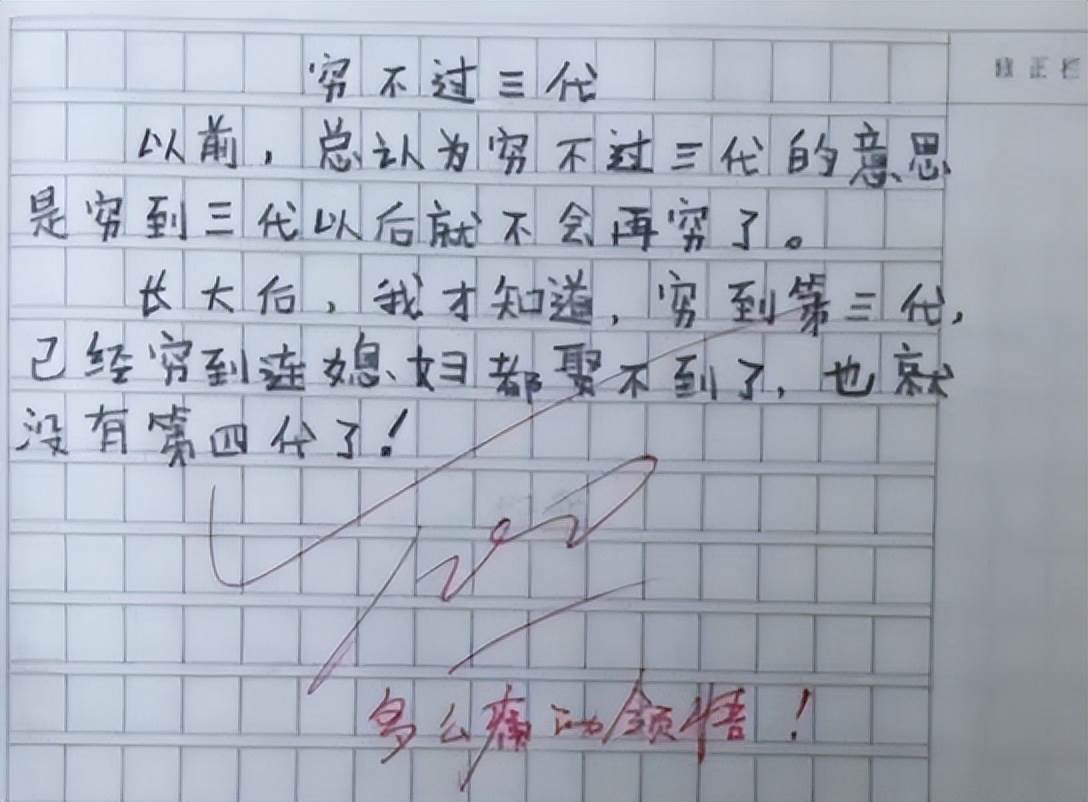 修正栏
穷不过三代
以前，总认为穷不过三代的意思
是穷到三代以后就不会再穷了。
长大后，我才知道，穷到第三代，
已经穷到连媳妇都娶不到了，也就
没有第四代了！
多么痛的领悟！